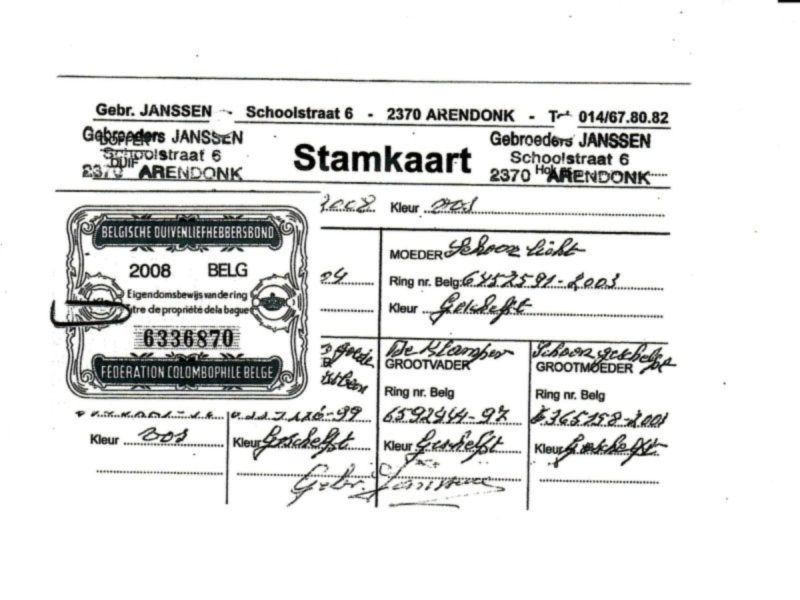 Gebr. JANSSEN - Schoolstraat 6 - 2370 ARENDONK - Tel. 014/67.80.82
Gebroeders JANSSEN
Schoolstraat 6
2370 ARENDONK
DOFFER
DUIF
Stamkaart
Gebroeders JANSSEN
Schoolstraat 6
2370 ARENDONK
2008 Kleur vos
BELGISCHE DUIVENLIEFHEBBERSBOND
2008 BELG
Eigendomsbewijs van de ring
Titre de propriété de la bague
6336870
FÉDÉRATION COLOMBOPHILE BELGE
MOEDER Schoon licht
Ring nr. Belg: 6452591-2003
Kleur Geschelpt
04
De Klamper
GROOTVADER
Ring nr. Belg
6592444-97
Kleur Geschelpt
Schoon geschelpt
GROOTMOEDER
Ring nr. Belg
6365158-2001
Kleur Geschelpt
Kleur vos
-99
Kleur Geschelpt
Gebr. Janssen